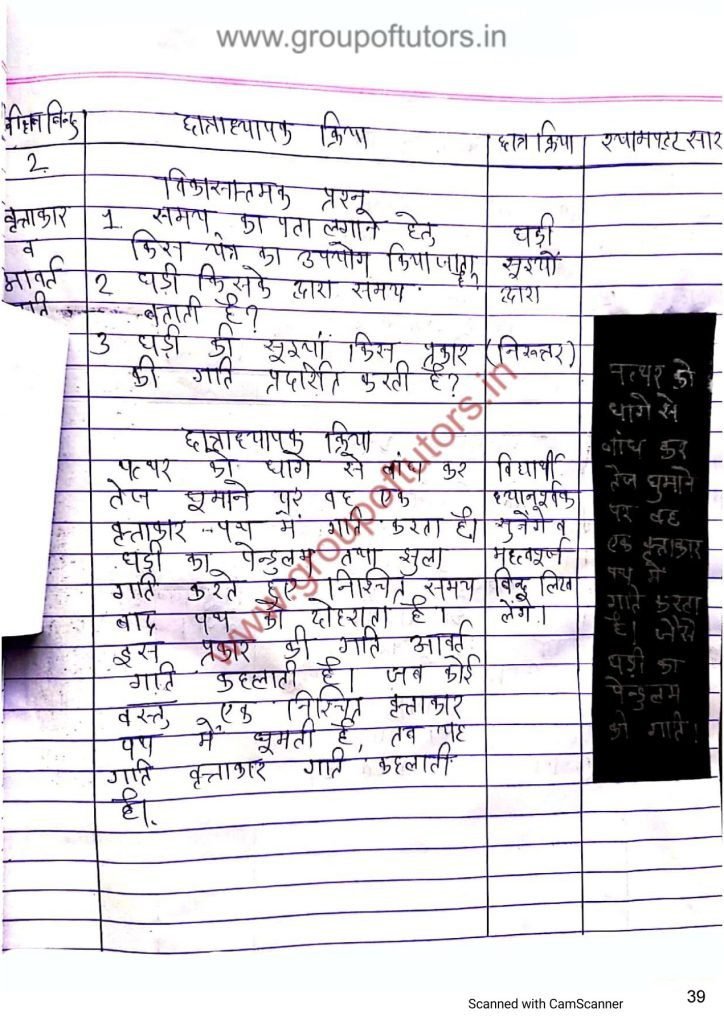 www.groupoftutors.in
शिक्षण बिन्दु
छात्राध्यापक क्रिया
छात्र क्रिया
श्यामपट्ट सार
2.
वृत्ताकार
व
आवर्त
गति
विकासात्मक प्रश्न
1. समय का पता लगाने हेतु
किस यंत्र का उपयोग किया जाता है?
2 घड़ी किसके द्वारा समय
बताती है?
3 घड़ी की सूइयां किस प्रकार
की गति प्रदर्शित करती है?
घड़ी
सूइयों
द्वारा
(निरूत्तर)
छात्राध्यापक क्रिया
पत्थर को धागे से बांध कर
तेज घूमाने पर वह एक
वृत्ताकार पथ में गति करता है।
घड़ी का पेन्डुलम तथा झुला
गति करते हुए निश्चित समय
बाद पथ को दोहराता है।
इस प्रकार की गति आवर्त
गति कहलाती है। जब कोई
वस्तु एक निश्चित वृत्ताकार
पथ में घूमती है, तब यह
गति वृत्ताकार गति कहलाती
है।
विद्यार्थी
ध्यानपूर्वक
सुनेंगे व
महत्वपूर्ण
बिन्दु लिख
लेंगे।
पत्थर को
धागे से
बांध कर
तेज घुमाने
पर वह
एक वृत्ताकार
पथ में
गति करता
है। जैसे
घड़ी का
पेन्डुलम
की गति।
www.groupoftutors.in
Scanned with CamScanner
39